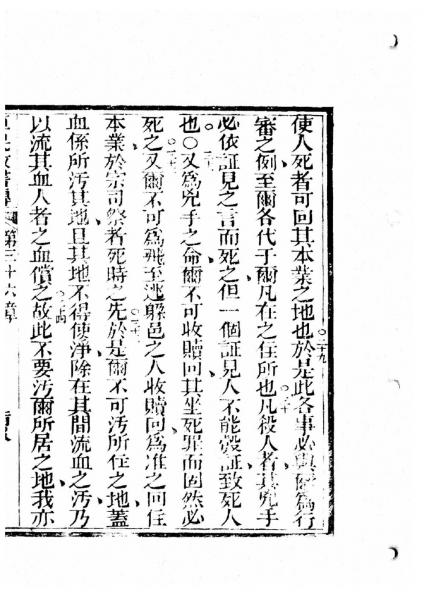 使人死者可回其本業之地也於是此各事必與爾為行
審之例至爾各代于爾凡在之住所也凡殺人者其兇手
必依証見之言而死之但一個証見人不能彀証致死人
也〇又為兇手之命爾不可收贖回其坐死罪而固然必
死之又爾不可為飛至逃躱邑之人收贖回為准之回住
本業於宗司祭者死時之先於是爾不可汚所住之地蓋
血係所汚其地且其地不得使淨除在其間流血之汚乃
以流其血人者之血償之故此不要汚爾所居之地我亦
第三十六章